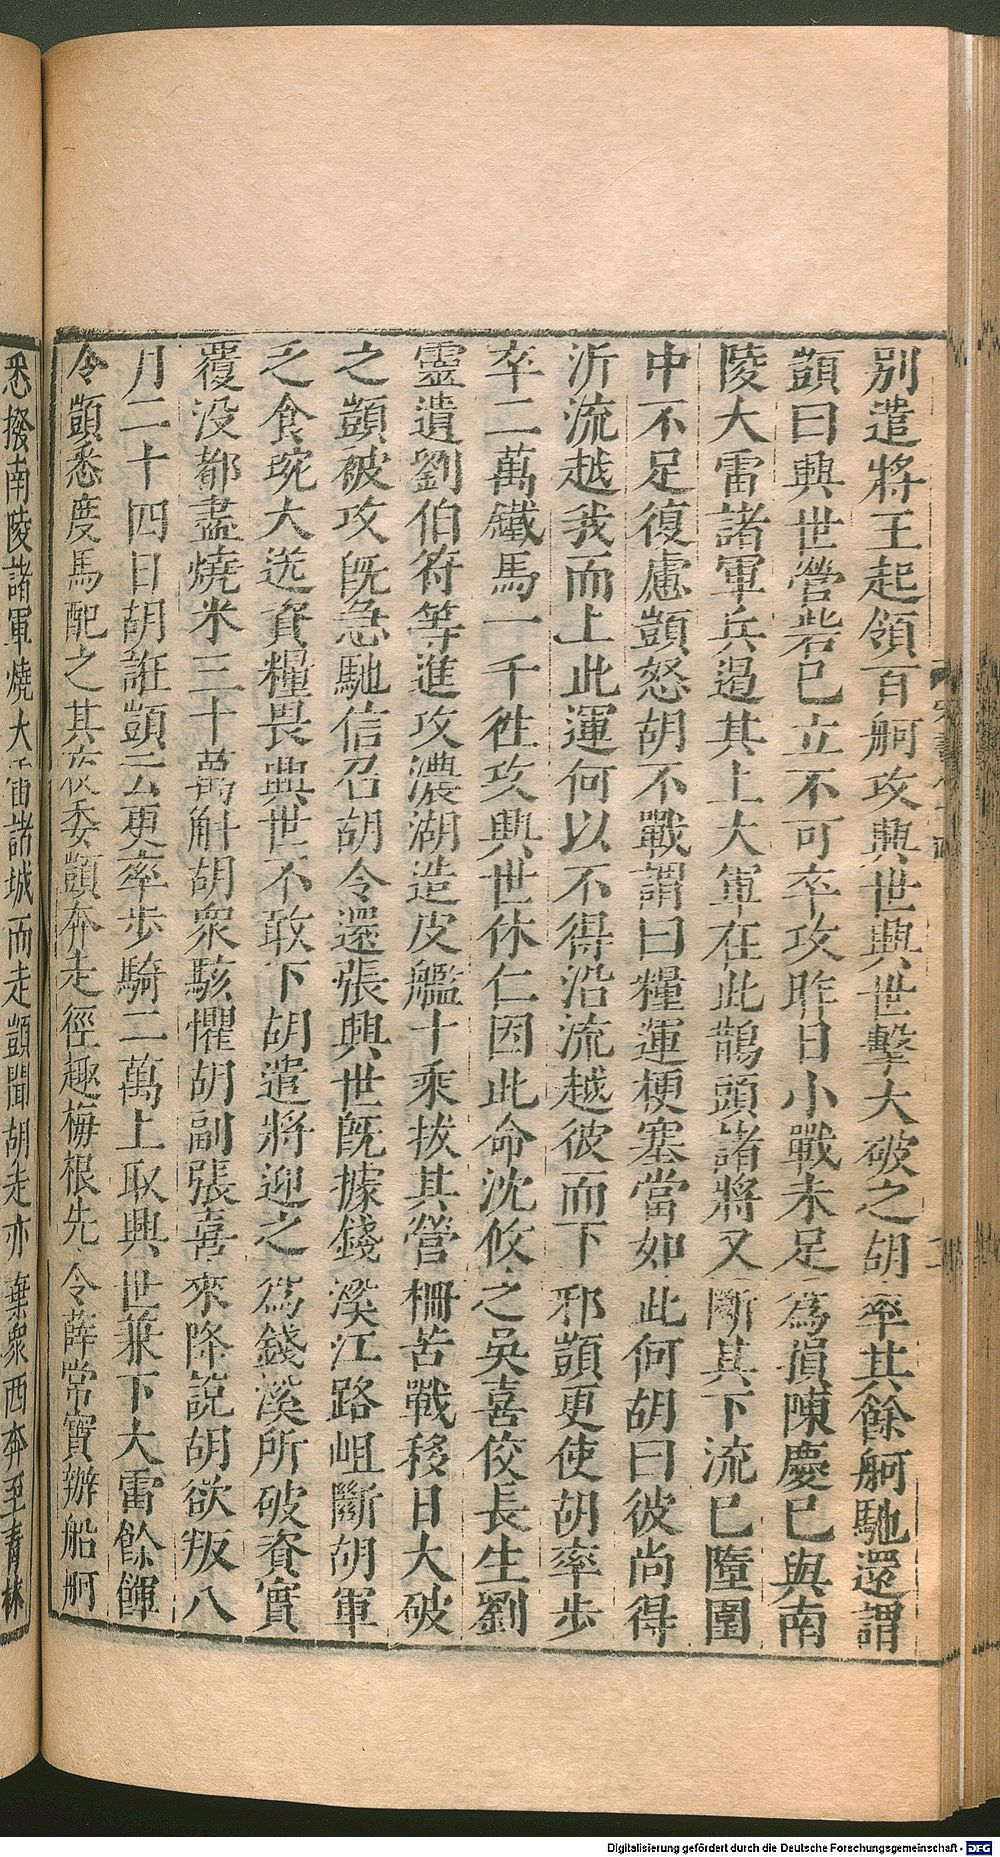 別遣將王起領百舸攻興世興世擊大破之胡率其餘舸馳還謂
顗曰興世營砦已立不可卒攻昨日小戰未足爲損陳慶已與南
陵大雷諸軍兵遏其上大軍在此鵲頭諸將又斷其下流已墮圍
中不足復慮顗怒胡不戰謂曰糧運梗塞當如此何胡曰彼尚得
泝流越我而上此運何以不得沿流越彼而下邪顗更使胡率步
卒二萬鐵馬一千徃攻興世休仁因此命沈攸之吳喜佼長生劉
靈遺劉伯符等進攻濃湖造皮艦十乘拔其營柵苦戰移日大破
之顗被攻旣急馳信召胡令還張興世旣據錢溪江路岨斷胡軍
乏食琬大送資糧畏興世不敢下胡遣將迎之爲錢溪所破資實
覆没都盡燒米三十萬斛胡衆駭懼胡副張喜來降說胡欲叛八
月二十四日胡誑顗云更率步騎二萬上取興世兼下大雷餘餫
令顗悉度馬配之其夜委顗奔走徑趣梅根先令薛常寶辦船舸
悉撥南陵諸軍燒大雷諸城而走顗聞胡走亦棄衆西奔至青林
Digitalisierung gefördert durch die Deutsche Forschungsgemeinschaft - DFG